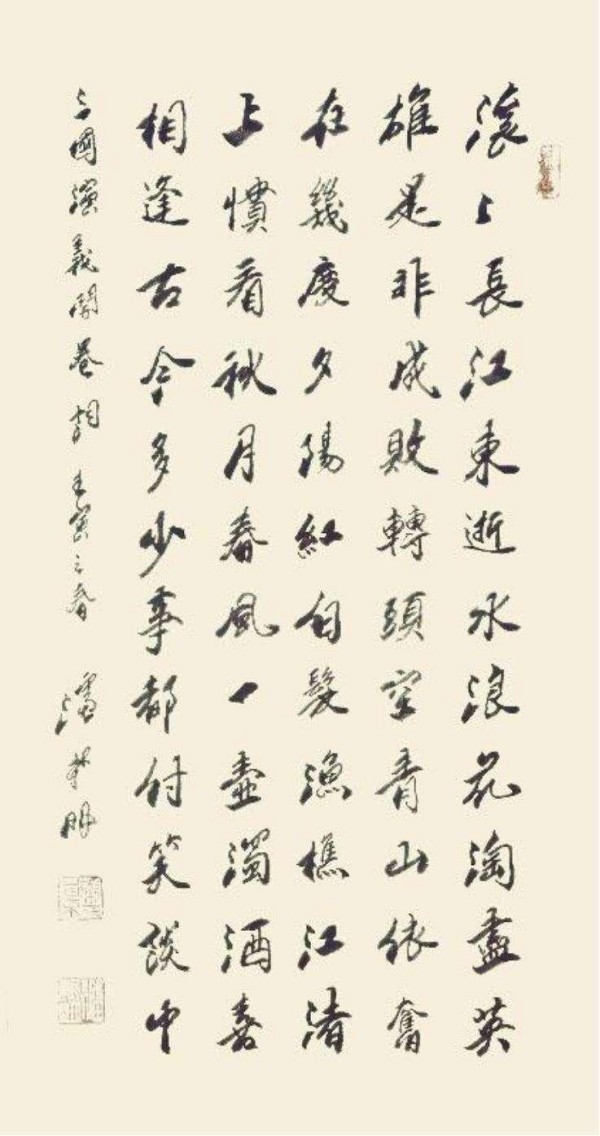 滚〻長江東逝水浪花淘盡英
雄是非成敗轉頭空青山依舊
在幾度夕陽紅白髮漁樵江渚
上慣看秋月春風一壺濁酒喜
相逢古今多少事都付笑談中
三國演義開卷詞 壬寅之春 潘